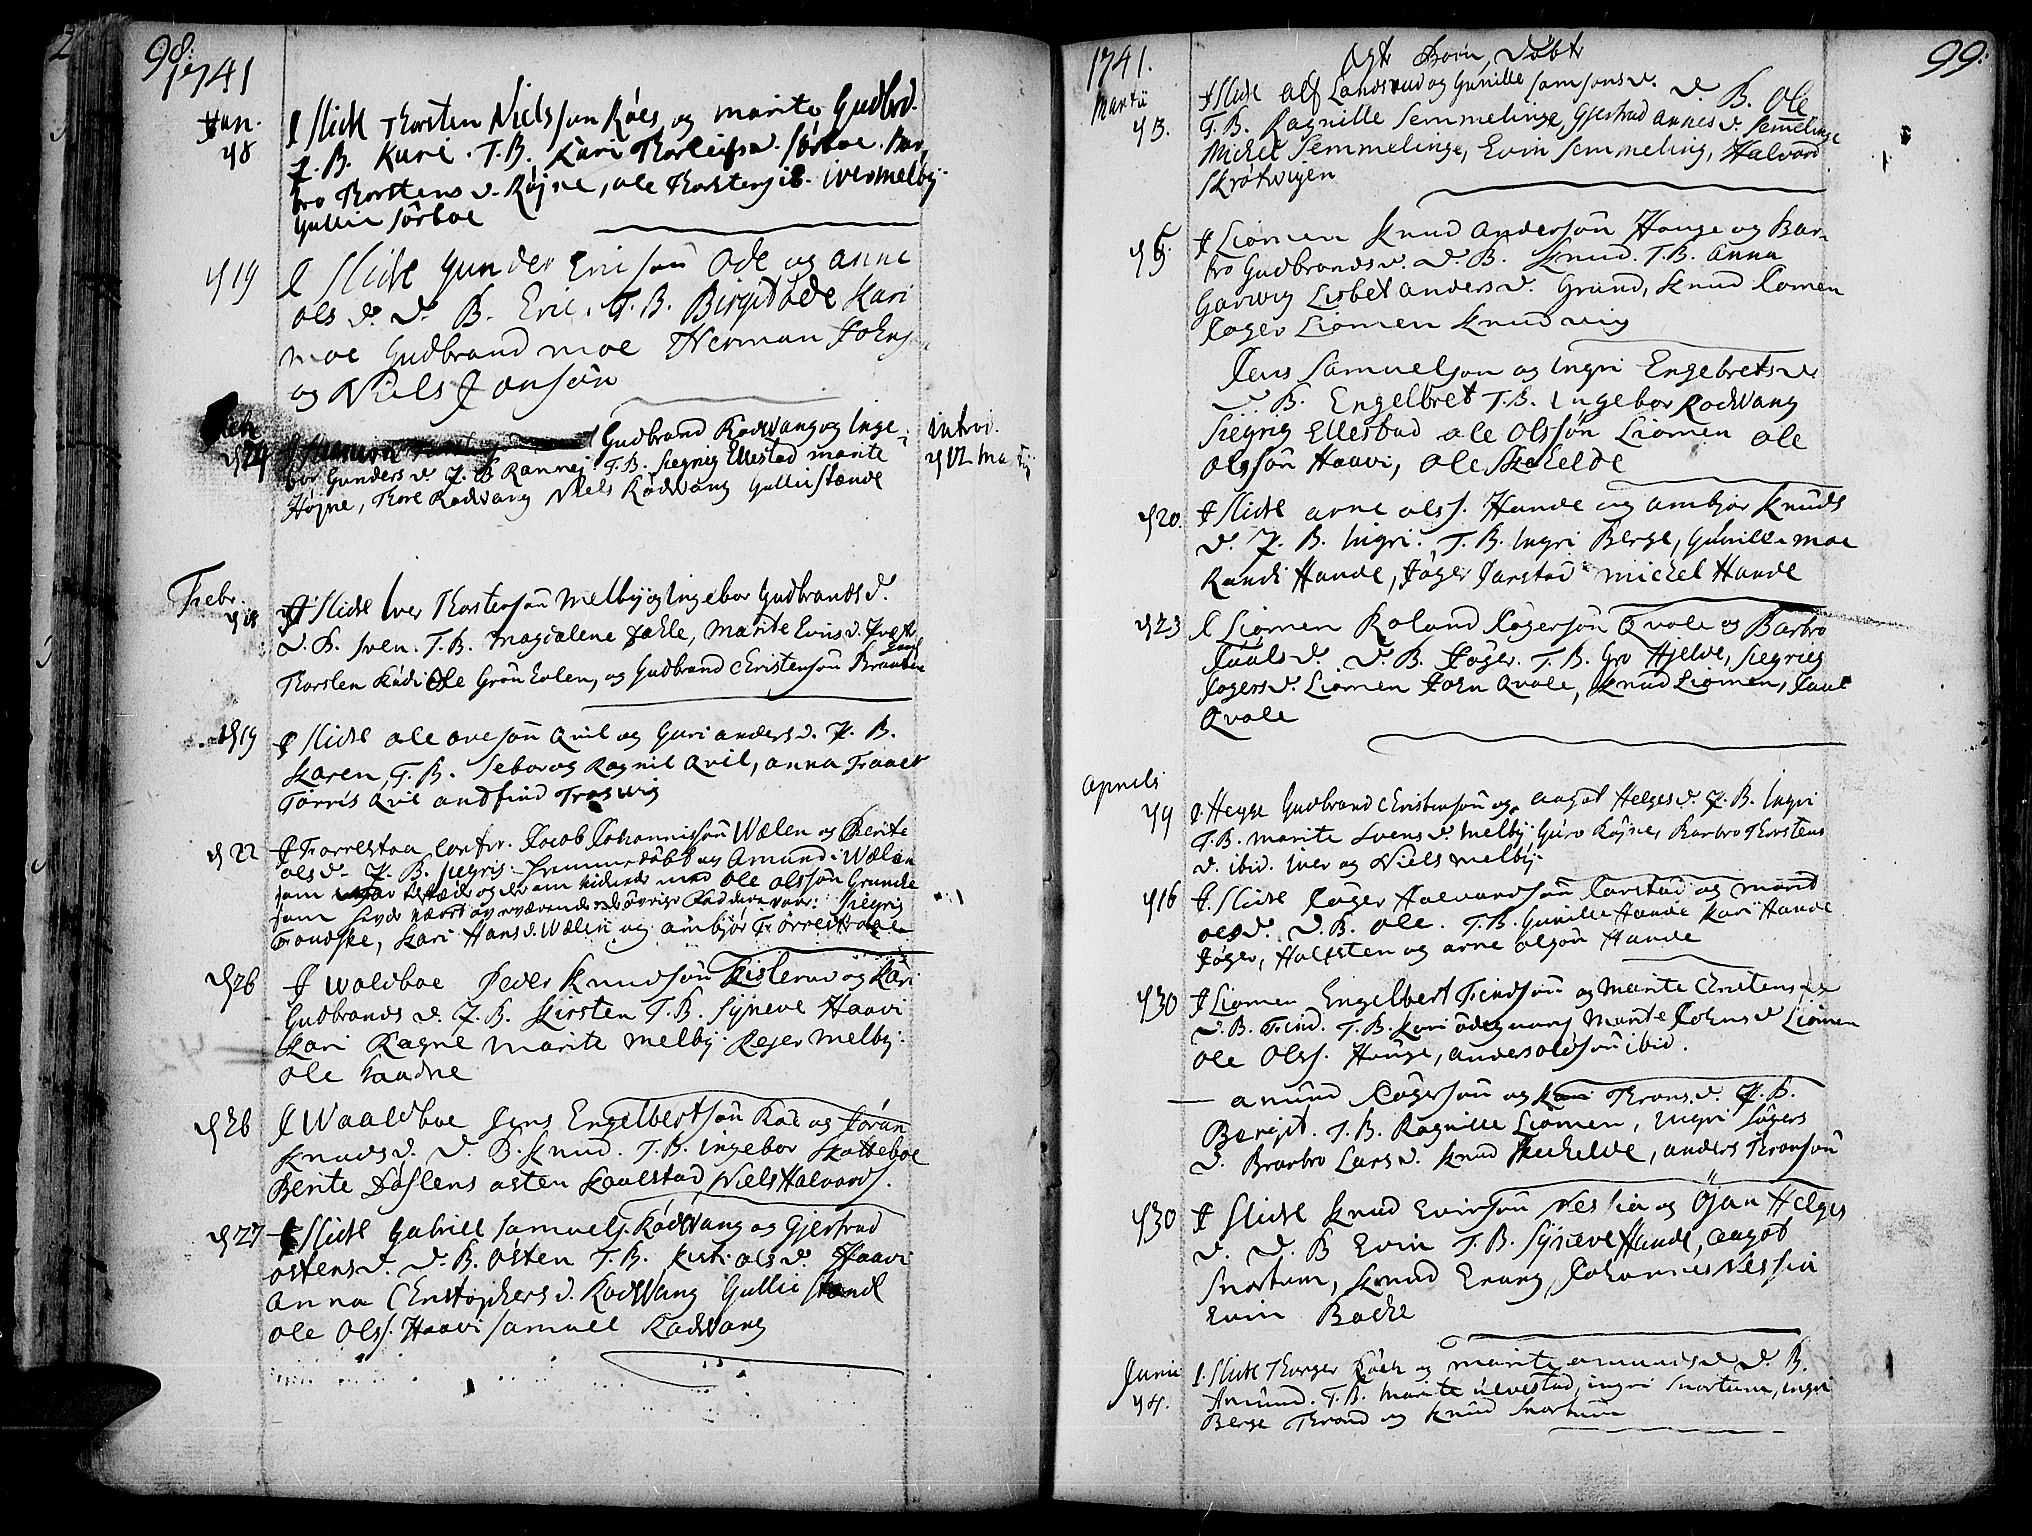 98.
1741
Jan.
d 8
J Slidre Thorsten Nielsson Röes og Marite Gudbrd.
P. B. Kari. T. B. Kari Thorleifsd. Sörboe. Bar-
bro Thorstens d. Röjne, Ole Thorstens Iver Melby.
Gullic Sörboe
d 19
J Slidre Gunder Ericsön Ode og Anne
Ols d. D. B. Eric. T. B. Birgit Ode Kari
Moe Gudbrand Moe Herman Johns
og Niels Jonsön
d 24
Gudbrand Rodvang og Inge-
bor Gunders d. P. B. Rannej. T. B. Siegrig Ellestad Marite
Höjne, Thore Rodvang Niels Rodvang Gullic Stande
introd.
d 12 Marti
Febr.
d 18
J Slidre Iver Thorstensön Melby og Ingebor Gudbrands d.
D. B. Sven. T. B. Magdalene Jahle, Marite Evins d.
Thorsten Ole Grönholen, og Gudbrand Christensön Braaten
d 19
J Slidre Ole Ovesön Qvil og Guri Anders d. P. B.
Karen, T. B. Seborog Ragnil Qvil, Anna
Torris Qvil Andfind
d 22
J Forrestaa Confr. Jacob Johannissön Wælen og Berite
Ols d. P. B. Siegris hiemmedöbt og Amund Wælen
som og som vidende med Ole Olssön Grunde
som Siegris
Kari Hans d. Wælen og Ambjör Förrestraae
d 26
J Waldboe Peder Knudsön og Kari
Gudbrands d. P. B. Kirsten T. B. Syneve Haavi
Kari Ragne Marite Melby. Rejer Melby.
Ole
d 26
J Waaldboe Jens Engelbertsön Roe og Jöran
Knuds d. D. B. Knud. T. B. Ingebor Skatteboe
Berite Döslens Osten Kaalstad Niels Halvords.
d 27
J Slidre Gabriel Samuels. Rodvang og Gjertrud
Ostens d. D. B. Osten T. B. Kirsti Ols d. Haavi
Anna Christophers d. Rodvang Gullic Stande
Ole Olss. Haavi Samuel Rodvang
1741.
Ægte Börn, Döbte
99.
Martii
d 3.
J Slidre Alf Landsrud og Gunille Samsons d. D. B. Ole
T. B. Ragnille Semmelinge, Gjertrud Annes d. Semelinge
Michel Semmelinge, Evin Semmeling, Halvord
Skrötvigen
d 5.
J Liomen Knud Andersön Houge og Bar-
bro Gudbrands d. D. B. Knud. T. B. Anna
Garvig Lisbet Anders d. Grand, Knud Lomen
Joger Liomen Knud vig
Jens Samuelson og Ingri Engebrets d.
D. B. Engelbret T. B. Ingebor Rodvang
Siegrig Ellestad Ole Olssön Liomen Ole
Olssön Haavi, Ole Skehelde
d 20.
J Slidre Arne Olss. Hande og Ambjör Knuds
d. P. B. Ingri. T. B. Ingri Berge, Gunille Moe
Randi Hande, Joger Jarstad Michel Hande
d 23
J Liomen Roland Jogersön Qvale og Barbro
Paals d. D. B. Joger. T. B. Gro Hjelve, Siegrig
Jogers d. Liomen John Qvale, Knud Liomen, Paul
Qvale
Aprilis
d 9
J. Hegge Gudbrand Christensön og Aagot Helges d. P. B. Ingri
T. B. Marite Svens d. Melby, Guro Röjne, Barbro Thorstens
d. ibid. Iver og Niels Melby.
d 16
J. Slidre Joger Halvordsön Jarstad og Marit
Ols d. D. B. Ole. T. B. Gunille Hande Kari Hande
Joger, Halfsten og Arne Olsön Hande
d 30
J Liomen Engelbert Findsön og Marite Christens d.
D. B. Find. T. B. Kari Ödegaard, Marite Johns d. Liomen
Ole Olss. Houge, Anders Olssön ibid.
— Amund Jogersön og Kari Throns. d. P. B.
Bergit. T. B. Ragnille Liomen, Ingri Jogers
d. Brarbro Lars d. Knud Skehelde, Anders Thronsön
d 30
J Slidre Knud Evinsön Neslia og Öjan Helges
d. D. B. Evin T. B. Syneve Hande, Aagot
Snortum, Knud Erang, Johannes Neslia
Evin Bache
Junii
d 4.
J. Slidre Thorger og Marite Amunds d. D. B.
Amund. T. B. Marite Ulvestad, Ingri Snortum, Ingri
Berge Thrond og Knud Snortum